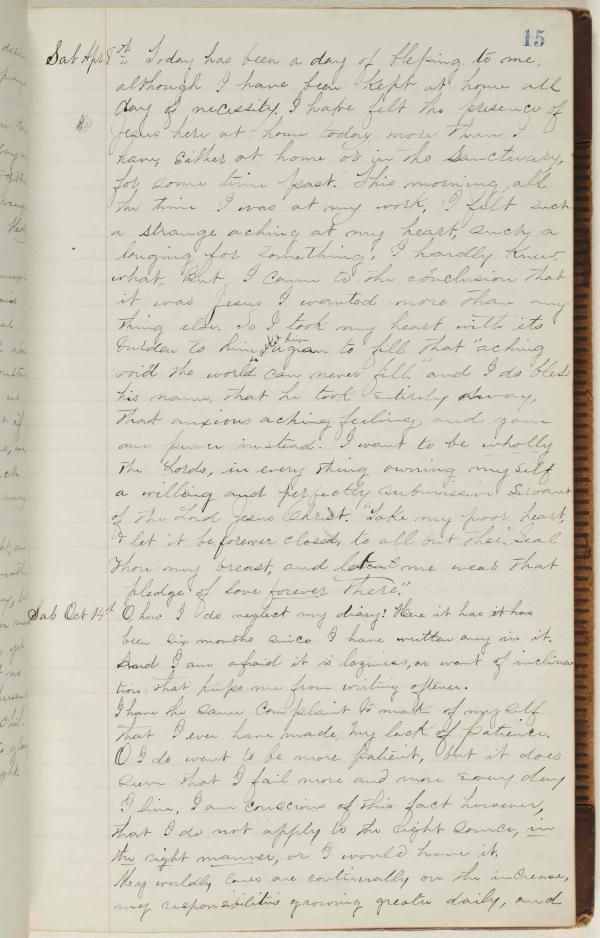 15
Sab Apr 8th. Today has been a day of blessing to me,
although I have been kept at home all
day of necessity. I have felt the presence of
Jesus here at home today more than I
have, either at home or in the Sanctuary,
for some time past. This morning, all
the time I was at my work, I felt such
a strange aching at my heart, such a
longing for something, I hardly knew
what, But I came to the conclusion that
it was Jesus I wanted more than any
thing else. So I took my heart with its
burden to him & asked him again to fill that "aching
void the world can never fill" and I do bless
his name, that he took entirely away,
that anxious aching feeling, and gave
me peace instead. I want to be wholly
the Lords, in every thing owning myself
a willing and perfectly submissive Servant
of the Lord Jesus Christ. "Take my poor heart,
& let it be forever closed, to all but thee," Seal
thou my breast, and let me wear that
pledge of love forever there."
Sab Oct 14th O how I do neglect my diary! Here it has it has
been six months since I have written any in it.
And I am afraid it is laziness, or want of inclina
tion that keeps me from writing oftener.
I have the same complaint to make of myself
that I ever have made, my lack of patience.
O I do want to be more patient, but it does
seem that I fail more and more every day
I live, I am conscious of this fact however,
that I do not apply to the right source, in
the right manner, or I would have it.
My worldly cares are continually on the increase,
my responsibilities growing greater daily, and